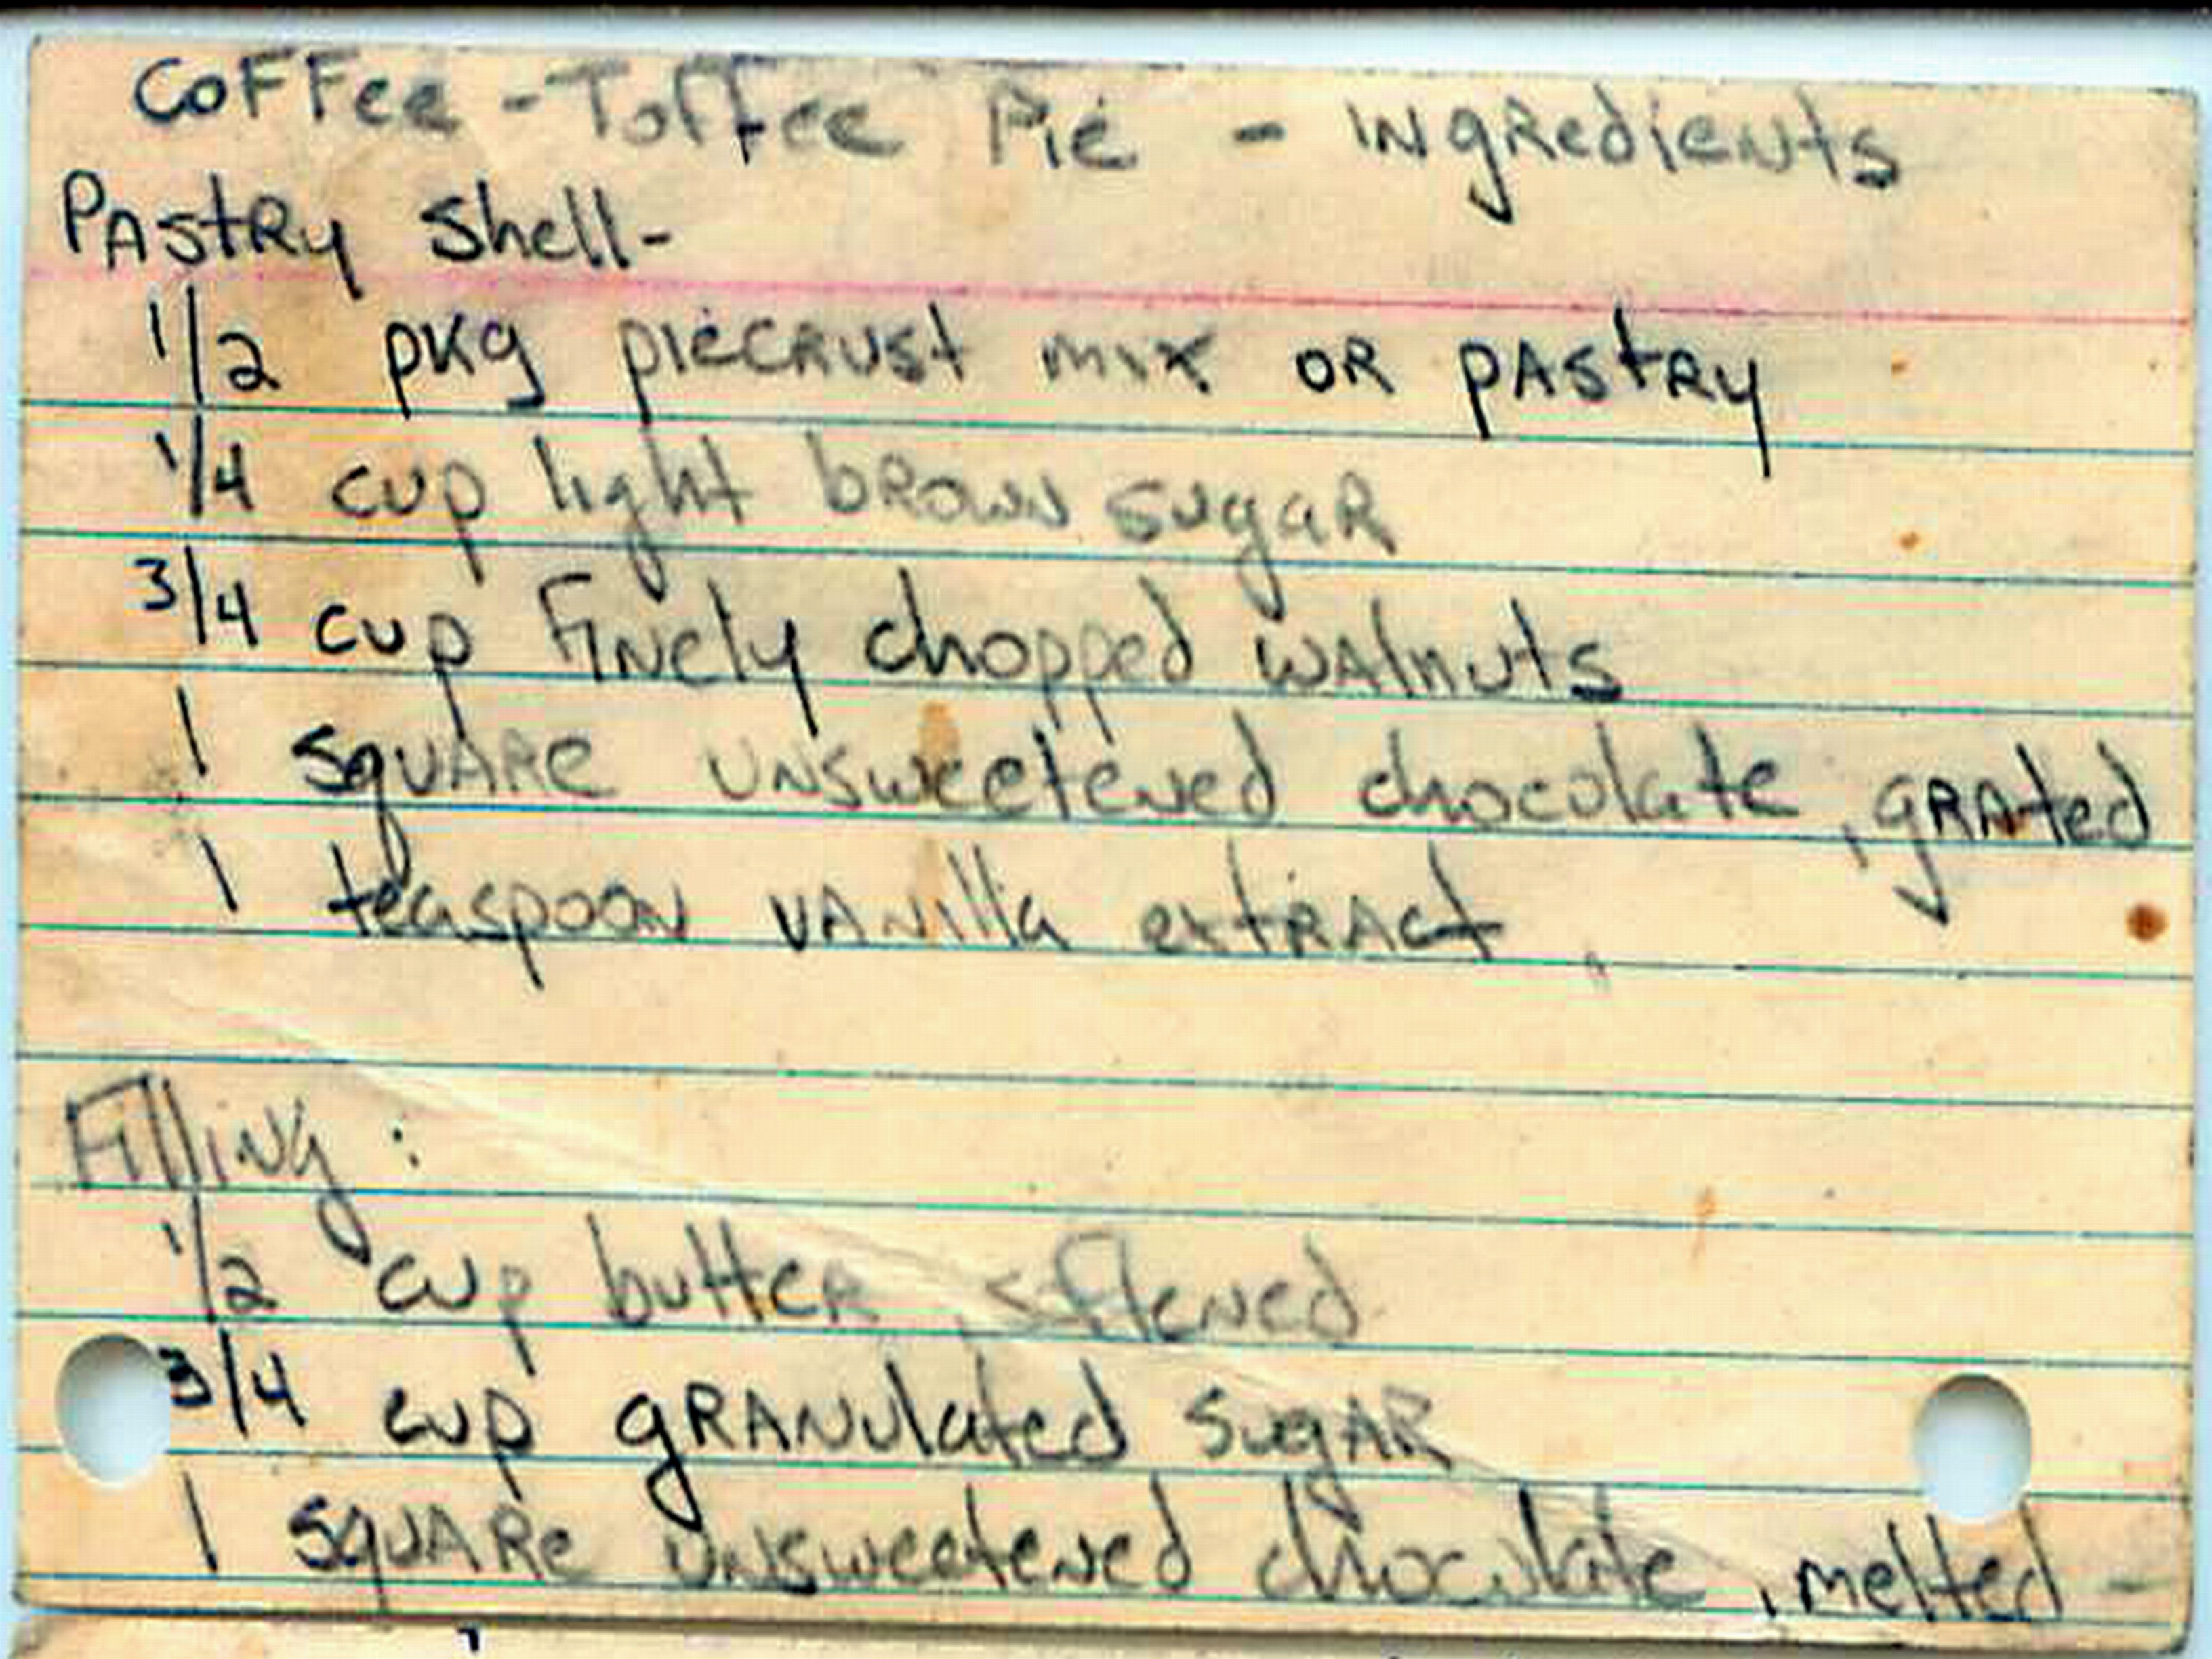 Coffee - Toffee Pie - Ingredients
Pastry Shell-
1/2 pkg piecrust mix or pastry
1/4 cup light brown sugar
3/4 cup finely chopped walnuts
1 square unsweetened chocolate, grated
1 teaspoon vanilla extract
Filling:
1/2 cup butter, softened
3/4 cup granulated sugar
1 square unsweetened chocolate, melted -